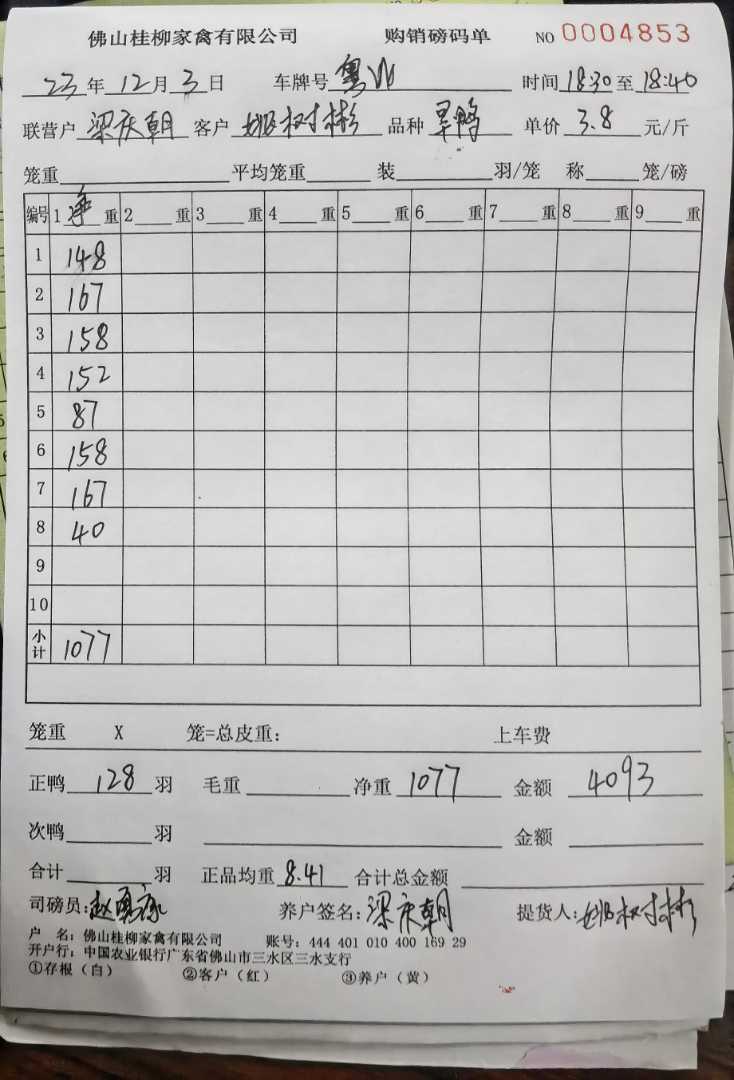 佛山桂柳家禽有限公司 购销磅码单 NO 0004853
23年12月3日 车牌号 粤 时间18:30至18:40
联营户 梁庆朝 客户 姚树彬 品种 旱鸭 单价 3.8 元/斤
笼重 平均笼重 装 羽/笼 称 笼/磅
编号 1 净 重 2 重 3 重 4 重 5 重 6 重 7 重 8 重 9 重
1 148
2 167
3 158
4 152
5 87
6 158
7 167
8 40
9
10
小计 1077
笼重 X 笼=总皮重: 上车费
正鸭 128 羽 毛重 净重 1077 金额 4093
次鸭 羽 金额
合计 羽 正品均重 8.41 合计总金额
司磅员: 养户签名:梁庆朝 提货人:姚树彬
户 名:佛山桂柳家禽有限公司 账号:444 401 010 400 169 29
开户行:中国农业银行广东省佛山市三水区三水支行
①存根(白) ②客户(红) ③养户(黄)